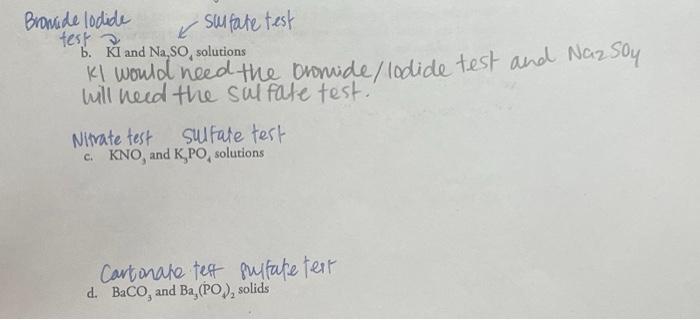 Bromide Iodide
test
sulfate test
b. KI and Na₂SO₄ solutions
KI would need the bromide/Iodide test and Na₂SO₄
will need the sulfate test.
Nitrate test sulfate test
c. KNO₃ and K₃PO₄ solutions
Carbonate test sulfate test
d. BaCO₃ and Ba₃(PO₄)₂ solids